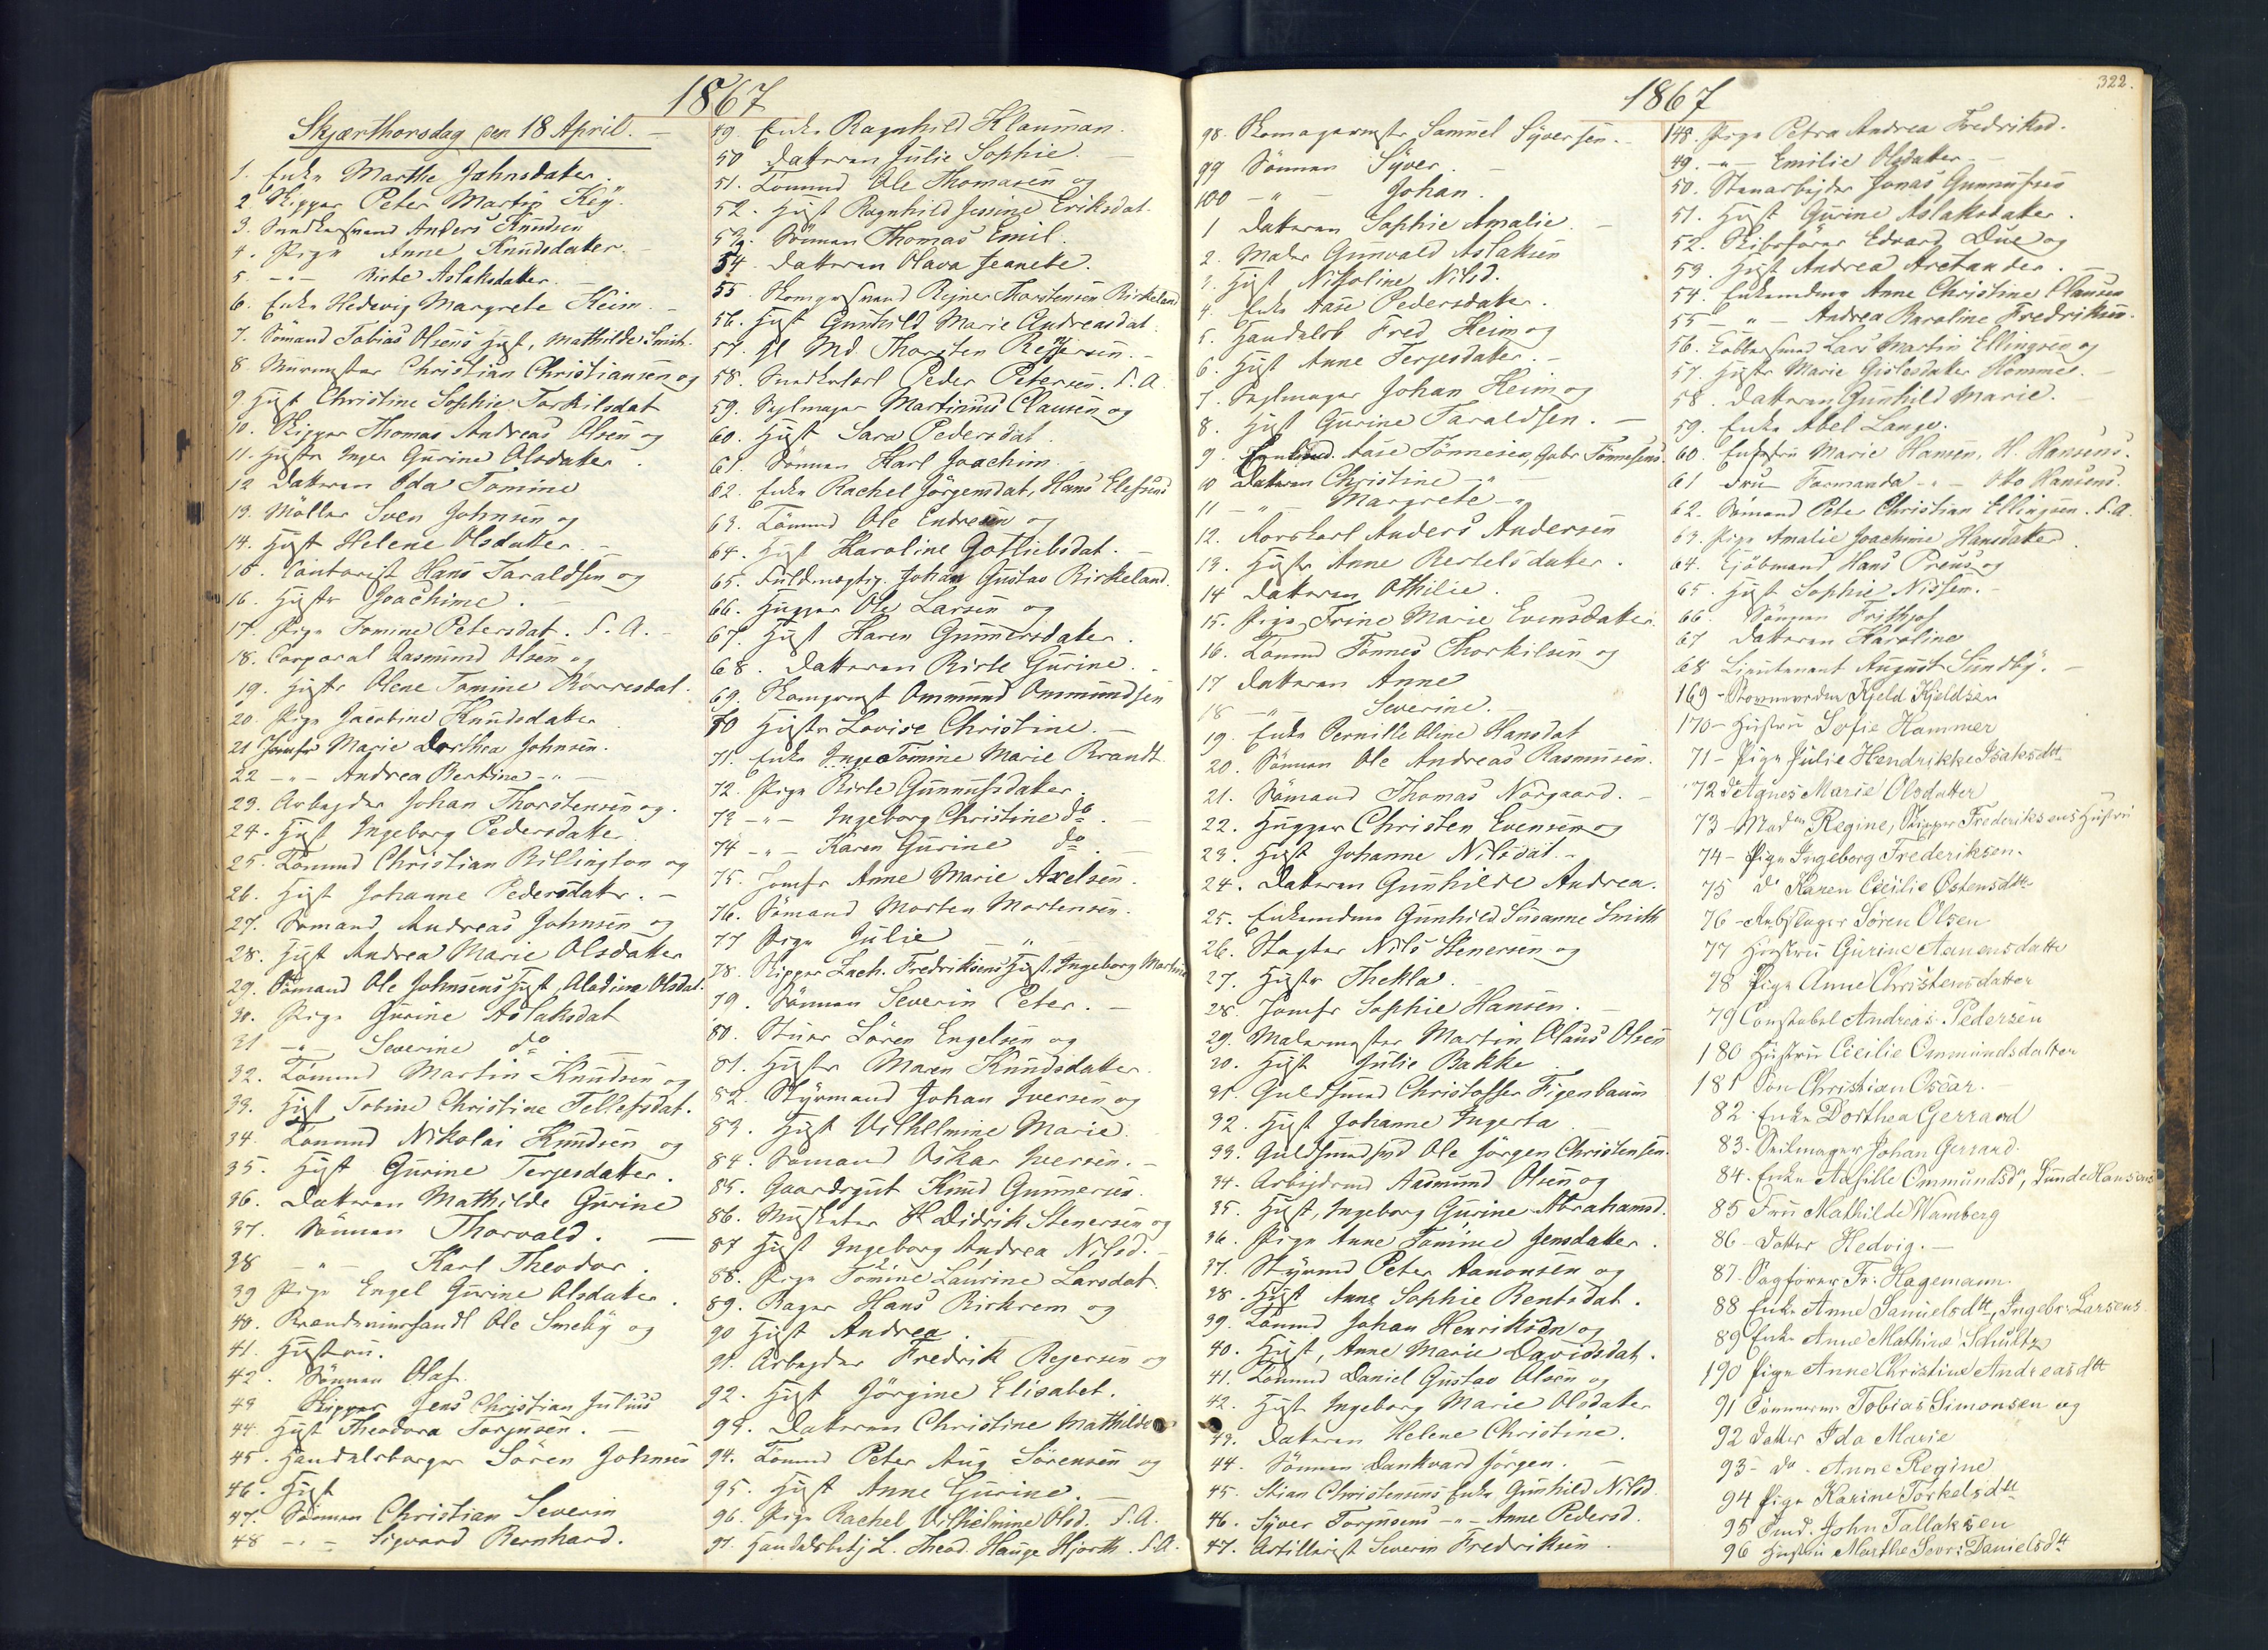 1867
Skjærthorsdag den 18 April.
1. Enke Marthe Johnsdatter.
2. Skipper Peter Martin Keÿ.
3. Snedkersvend Anders Knudsen
4. Pige Anne Knudsdatter.
5. -"- Birte Aslaksdatter.
6. Enke Hedevig Margrete Heim
7. Sömand Tobias Olsens Hust, Mathilde Smith.
8. Murmester Christian Christiansen og
9 Hust Christine Sophie Torkilsdat
10. Skipper Thomas Andreas Olsen og
11. Hustr Inger Gurine Olsdatter.
12 Datteren Ida Tomine
13. Möller Sven Johnsen og
14. Hust Helene Olsdatter.
15. Contorist Hans Taraldsen og
16. Hustr Joachime.
17. Pige Tomine Petersdat. S. A.
18. Corporal Aasmund Olsen og
19. Hustr Olene Tomine Börresdat.
20. Pige Jacobine Knudsdatter
21 Jomfr Marie Dorthea Johnsen.
22 -"- Andrea Bertine -"-
23. Arbejder Johan Thorstensen og.
24. Hust Ingeborg Pedersdatter
25. Tömmd Christian Billington og
26. Hust Johanne Pedersdatr.
27. Sömand Andreas Johnsen og
28. Hust Andrea Marie Olsdatter
29. Sömand Ole Johnsens Hust, Aladine Olsdat.
30. Pige Gurine Aslaksdat
31 -"- Severine do
32. Tömmd Martin Knudsen og
33. Hust Tobine Christine Tellefsdat.
34. Tömmd Nikolai Knudsen og
35. Hust Gurine Terjesdatter.
36. Datteren Mathilde Gurine
37. Sönnen Thorvald.
38 -"- Karl Theodor.
39 Pige Engel Gurine Olsdatter.
40. Brændeviinshandl Ole Smeby og
41. Hustru.
42. Sönnen Olaf.
43 Skipper Jens Christian Julius
44. Hust Theodora Torjusen.
45. Handelsborger Sören Johnsen
46. Hust
47. Sönnen Christian Severin
48 -"- Sigvard Bernhard.
49. Enke Ragnhild Klauman.
50 Datteren Julie Sophie.
51. Tömmd Ole Thomasen og
52. Hust Ragnhild Jessine Eriksdat.
53. Sönnen Thomas Emil.
54. Datteren Olava Jeanette.
55. Skomgersvend Rejner Thorstensen Birkeland
56. Hust Gunhild Marie Andreasdat.
57. gl Md Thorsten Rejersen.
58. Snedkerlærl Peder Petersen. S. A.
59. Sejlmager Martinus Clausen og
60. Hust Sara Pedersdat.
61. Sönnen Karl Joachim.
62. Enke Rachel Jörgensdat, Hans Elefsens
63. Tömmd Ole Endresen og
64. Hust Karoline Gotliebsdat.
65. Fuldmægtig Johan Gustav Birkeland.
66. Hugger Ole Larsen og
67. Hust Karen Gunnersdatter.
68. Datteren Birte Gurine.
69. Skomgermst Ommund Ommundsen
70 Hustr Lovise Christine.
71. Enke Inge Tomine Marie Brandt
72. Pige Birte Gunnufsdatter.
73 -"- Ingeborg Christine do.
74 -"- Karen Gurine do.
75. Jomfr Anne Marie Axelsen.
76. Sömand Morten Mortensen.
77 Pige Julie -"-
78. Skipper Zach. Fredriksens Hust. Ingeborg Martine
79. Sönnen Severin Peter.
80. Stuer Sören Engelsen og
81. Hustr Maren Knudsdatter.
82. Styrmand Johan Iversen og
83. Hust Vilhelmine Marie.
84. Sömand Oskar Iversen.
85. Gaardsgut Knud Gunnersen.
86. Musketer H. Didrik Stenersen og
87 Hust Ingeborg Andrea Nilsd.
88. Pige Tomine Laurine Larsdat.
89. Bager Hans Birkrem og
90 Hust Andrea.
91. Arbejder Fredrik Rejersen og
92. Hust Jörgine Elisabet.
93. Datteren Christine Mathilde
94. Tömmd Peter Aug Sörensen og
95. Hust Anne Gurine.
96. Pige Rachel Vilhelmine Olsd. S. A.
97. Handelsbetj L. Theod. Hauge Hjorth. S. A.
1867
322.
98. Skomagermstr Samuel Syversen.
99 Sönnen Syver.
100 -"- Johan.
1 Datteren Sophie Amalie.
2. Maler Gunvald Aslaksen
3. Hust Nikoline Nilsd.
4. Enke Aase Pedersdatter.
5. Handelsb Fred Heim og
6. Hust Anne Terjesdatter.
7. Sejlmager Johan Heim og
8. Hust Gurine Taraldsen.
9. Aase Tönnesen, Gabr Tönnesens
10 Datteren Christine -"-
11 -"- Margrete -"-
12. Anders Andersen
13. Hustr Anne Bertelsdatter.
14 Datteren Othilie.
15. Pige Trine Marie Evensdatter.
16. Tömmd Tönnes Thorkilsen og
17 Datteren Anne
18 -"- Severine.
19. Enke Pernille Oline Hansdat
20. Sönnen Ole Andreas Rasmusen.
21. Sömand Thomas Norgaard.
22. Hugger Christen Evensen og
23. Hust Johanne Nilsdat.
24. Datteren Gunhilde Andrea.
25. Enkemadme Gunhild Susanne Smith
26. Slagter Nils Stenersen og
27. Hustr Thekla.
28. Jomfr Sophie Hansen.
29. Malermester Martin Olaus Olsen
30. Hust Julie Bakke
31. Guldsmed Christoffer Figenbaum
32. Hust Johanne Ingerta
33. Guldsmedsvd Ole Jörgen Christensen.
34. Arbejdsmd Aasmund Olsen og
35. Hust, Ingeborg Gurine Abrahamsd.
36. Pige Anne Tomine Jensdatter.
37. Styrmd Peter Aanonsen og
38. Hust Anne Sophie Bentsdat.
39. Tömmd Johan Henriksen og
40. Hust, Anne Marie Davidsdat.
41. Tömmd Daniel Gustav Olsen og
42. Hust Ingeborg Marie Olsdatter
43. Datteren Helene Christine.
44. Sönnen Dankvard Jörgen.
45. Stian Christensens Enke Gunhild Nilsd.
46. Syver Torjusens -"- Anne Pedersd.
47. Artillerist Severin Fredriksen.
148. Pige Petra Andrea Fredriksd.
49. -"- Emilie Olsdatter
50. Stenarbejder Jonas Gunnufsen
51. Hust Gurine Aslaksdatter.
52. Skibsförer Edvard Due og
53. Hust Andrea Aretander.
54. Enkemdme Anne Christine Clausen
55 -"- Andrea Karoline Fredriksen.
56. Kobbersmed Lars Martin Ellingsen og
57. Hustr Marie Gislesdatter Hommel.
58. Datteren Gunhild Marie.
59. Enke Abel Lange.
60. Marie Hansen, H. Hansens.
61 Fru Tormanda -"- Otto Hansens.
62. Sömand Peter Christian Ellingsen. S. A.
63. Pige Amalie Joachime Hansdatter.
64. Kjöbmand Hans Preus og
65. Hust Sophie Nissen.
66. Sönnen Frithjof
67 Datteren Karoline
68 Lieutenant August Sundby.
169 - Kjeld Kjeldsen
170 - Hustru Sofie Hammer
71 - Pige Julie Hendrikke Isaksdtt
72 do Agnes Marie Olsdatter
73 - Madm Regine, Skipper Frederiksens Hustru
74 - Pige Ingeborg Frederiksen.
75 do Karen Cicilie Østensdtt
76 - Rebslager Søren Olsen
77 Hustru Gurine Aanensdatter
78 Pige Anne Christensdatter
79 Constabel Andreas Pedersen
180 Hustru Cicilie Ommundsdatter
181 Søn Christian Oscar.
82 Enke Dorthea Gerrard
83. Seilmager Johan Gerrard.
84. Enke Axille Ommundsdr, Sunde Hansens
85 Fru Mathilde Wamberg
86 - Datter Hedvig.
87. Sagfører Fr. Hagemann.
88 Enke Anne Samuelsdtt, Ingebr: Larsens
89 Enke Anne Mathine Schultz
190 Pige Anne Christine Andreasdtt
91 Tömmerm. Tobias Simonsen og
92 Datter Ida Marie
93 - do. Anne Regine
94 Pige Karine Torkelsdtt
95 John Tallaksen
96 Hustru Marthe Sevr: Danielsdtt